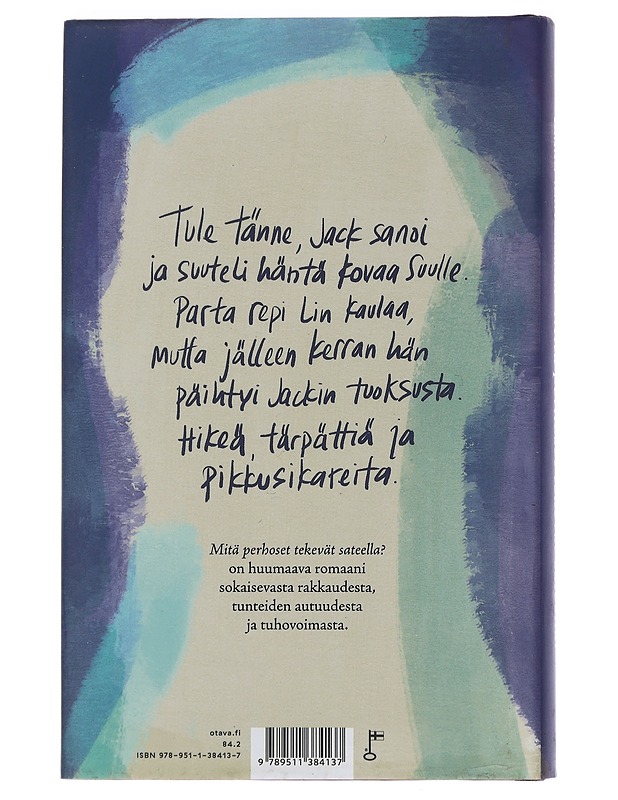 Tule tänne, Jack sanoi
ja suuteli häntä kovaa suulle.
Parta repi Lin kaulaa,
mutta jälleen kerran hän
päihtyi Jackin tuoksusta.
Hikeä, tärpättiä ja
pikkusikareita.
Mitä perhoset tekevät sateella?
on huumaava romaani
sokaisevasta rakkaudesta,
tunteiden autuudesta
ja tuhovoimasta.
otava.fi
84.2
ISBN 978-951-1-38413-7
9 789511 384137